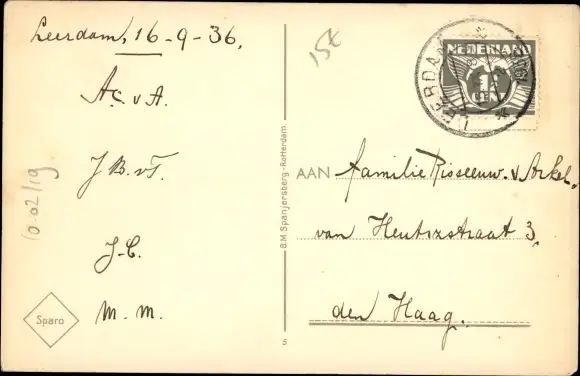 Leerdam, 16-9-36.
A.C. v A.
J B. v T.
J-C.
M. M.
10-02/19
Sparo
B.M. Spanjersberg-Rotterdam.
5
15t
NEDERLAND
1
LEERDAM
AAN familie Risseeuw. v
van Heutszstraat 3.
den Haag.